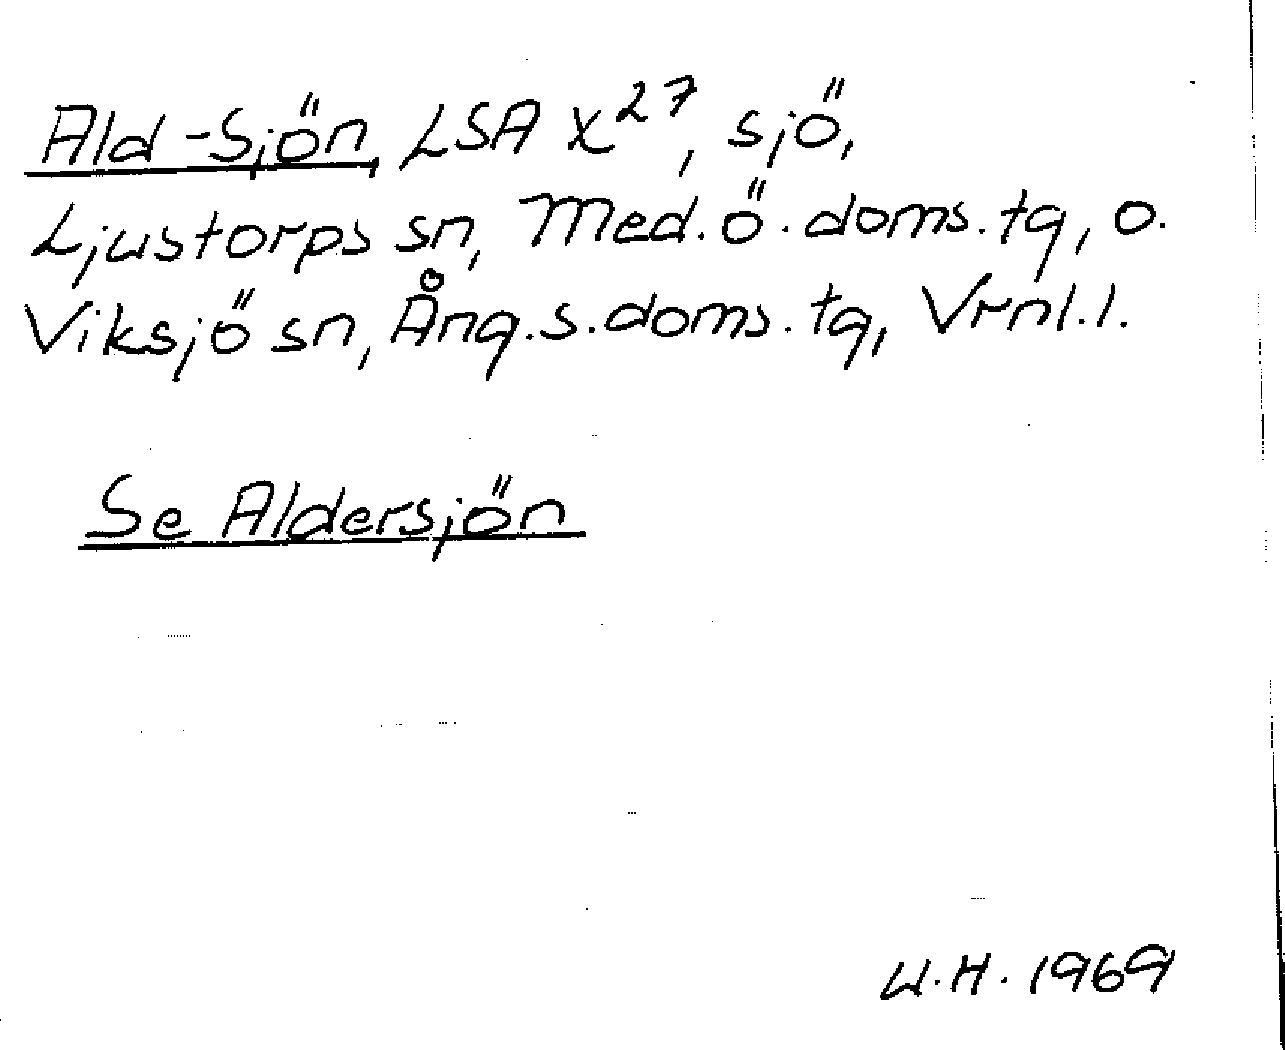 Ald-Sjön, LSA X27, sjö,
Ljustorps sn, Med.ö.doms.tg, o.
Viksjö sn, Ång.s.doms.tg, Vrnl.l.
Se Aldersjön
U.H. 1969